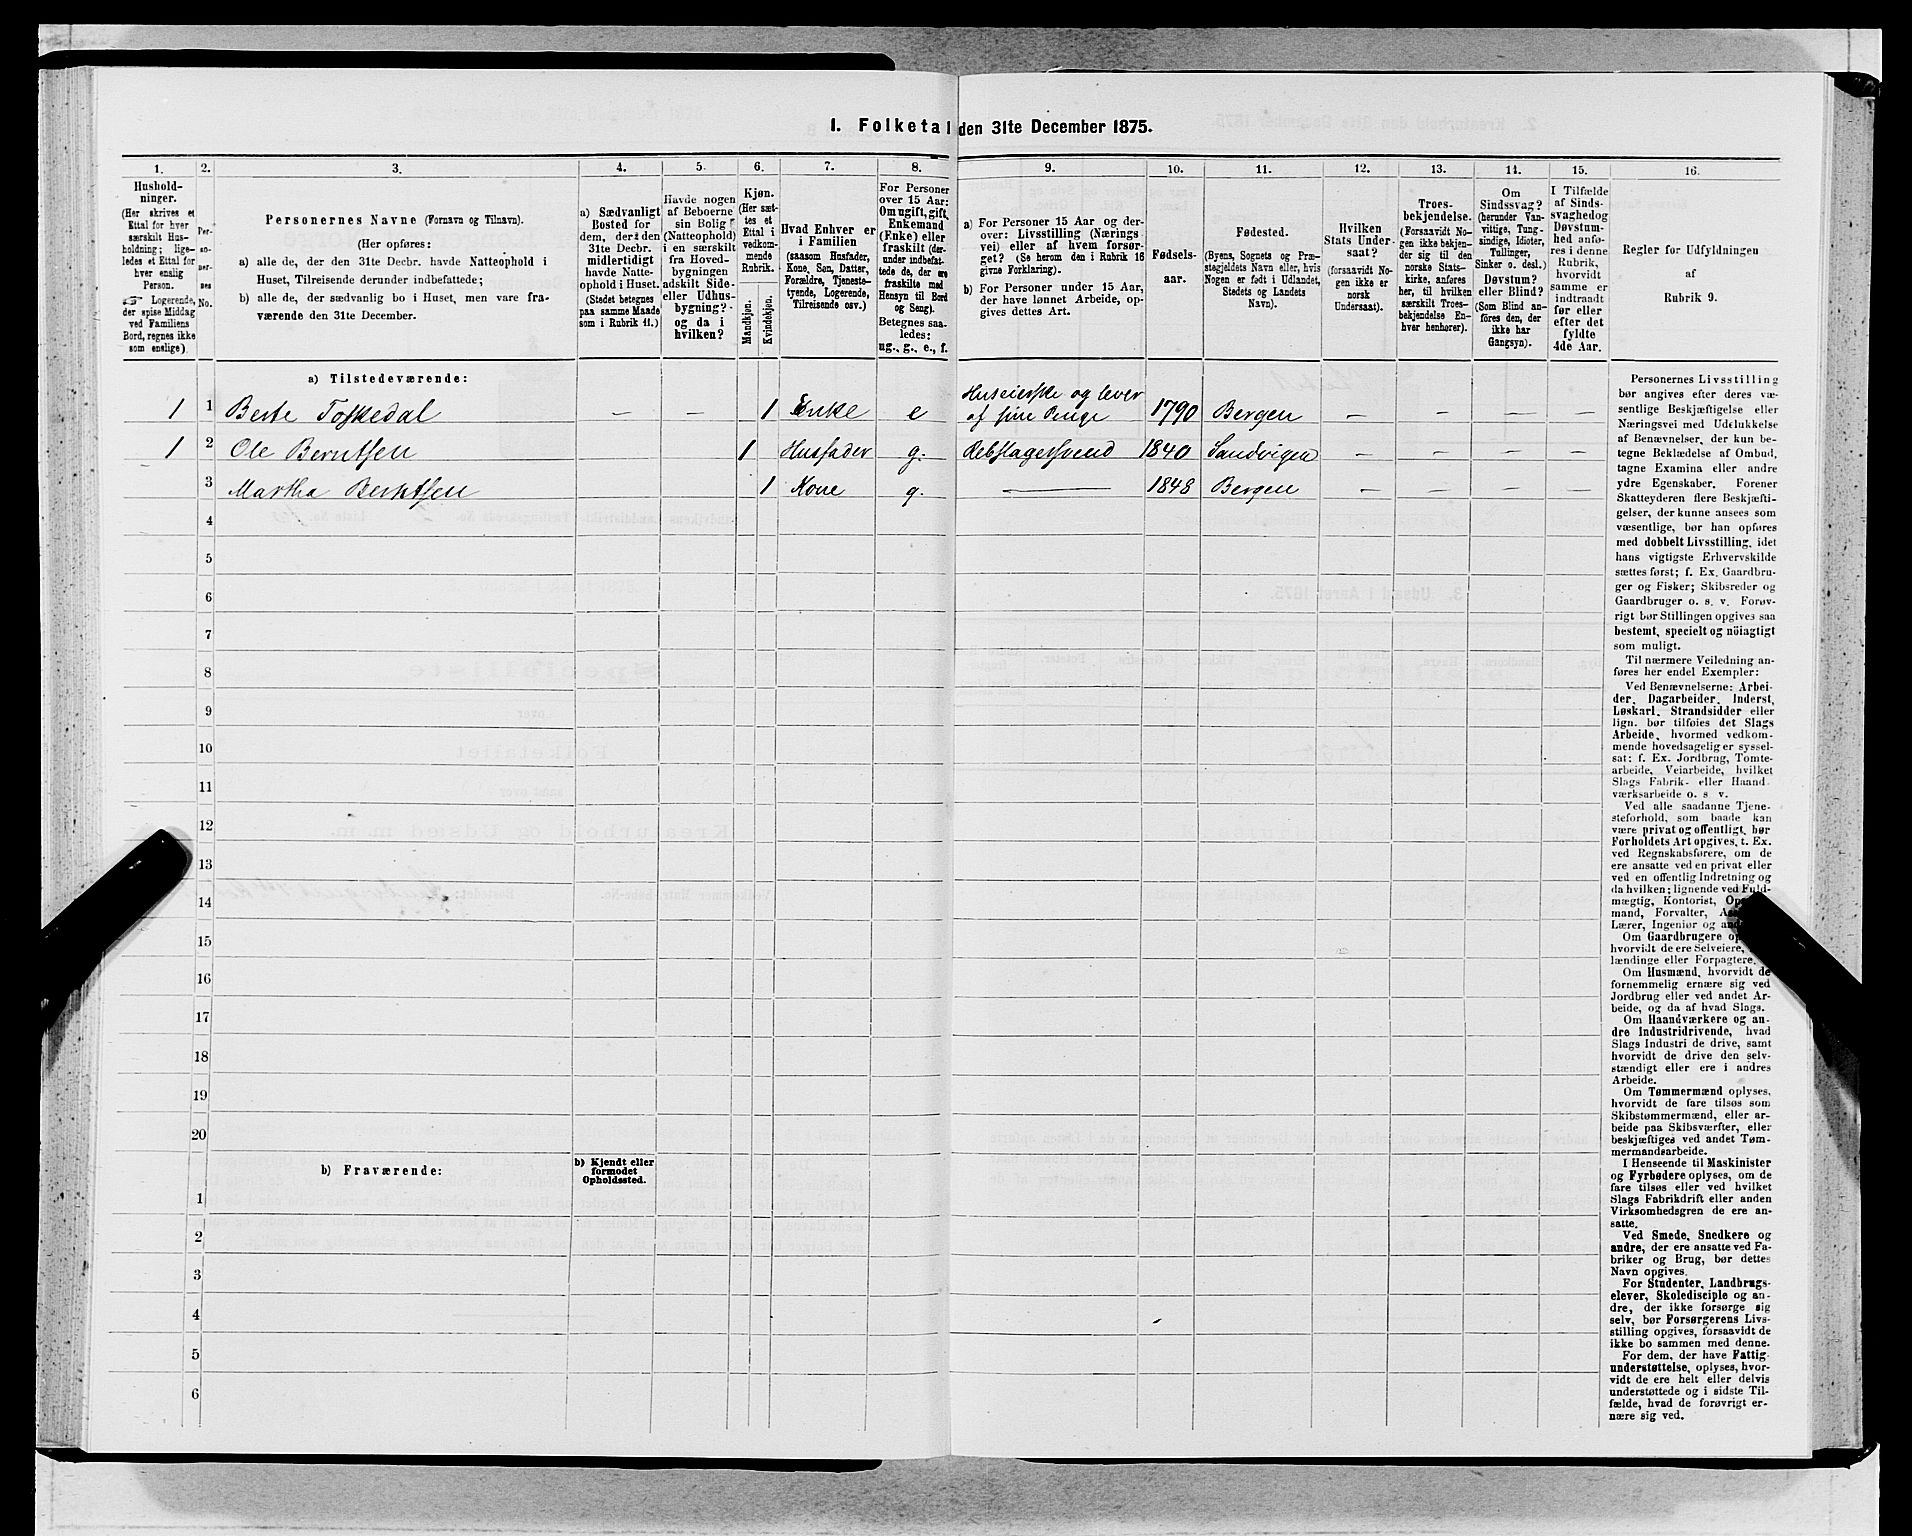 I. Folketal den 31te December 1875.
1. 2. 3. 4. 5. 6. 7. 8. 9. 10. 11. 12. 13. 14. 15. 16.
Hushold-
ninger.
(Her skrives et
Ettal for hver
særskilt Hus-
holdning; lige-
ledes et Ettal for
hver enslig
Person.
☞ Logerende,
der spise Middag
ved Familiens
Bord, regnes ikke
som enslige).
Per-
so-
ner-
nes
No.
Personernes Navne (Fornavn og Tilnavn).
(Her opføres:
a) alle de, der den 31te Decbr. havde Natteophold i
Huset, Tilreisende derunder indbefattede;
b) alle de, der sædvanlig bo i Huset, men vare fra-
værende den 31te December.
a) Sædvanligt
Bosted for
dem, der den
31te Decbr.
midlertidigt
havde Natte-
ophold i Huset.
(Stedet betegnes
paa samme Maade
som i Rubrik 11.)
Havde nogen
af Beboerne
sin Bolig
(Natteophold)
i en særskilt
fra Hoved-
bygningen
adskilt Side-
eller Udhus-
bygning?
og da i
hvilken?
Kjøn.
(Her sæt-
tes et
Ettal i
vedkom-
mende
Rubrik.)
Mandkjøn.
Kvindekjøn.
Hvad Enhver er
i Familien
(saasom Husfader,
Kone, Søn, Datter,
Forældre, Tjeneste-
tyende, Logerende,
Tilreisende osv.)
For Personer
over 15 Aar:
Om ugift, gift,
Enkemand
(Enke) eller
fraskilt (der-
under indbefat-
tede de, der ere
fraskilte med
Hensyn til Bord
og Seng).
Betegnes saa-
ledes:
ug., g., e., f.
a) For Personer 15 Aar og der-
over: Livsstilling (Nærings-
vei) eller af hvem forsør-
get? (Se herom den i Rubrik 16
givne Forklaring).
b) For Personer under 15 Aar,
der have lønnet Arbeide, op-
gives dettes Art.
Fødsels-
aar.
Fødested.
(Byens, Sognets og Præ-
stegjeldets Navn eller, hvis
Nogen er født i Udlandet,
Stedets og Landets
Navn).
Hvilken
Stats Under-
saat?
(forsaavidt No-
gen ikke er
norsk
Undersaat).
Troes-
bekjendelse.
(Forsaavidt No-
gen ikke bekjen-
der sig til den
norske Stats-
kirke, anføres
her, til hvilken
særskilt Troes-
bekjendelse En-
hver henhører).
Om
Sindssvag?
(herunder Van-
vittige, Tung-
sindige, Idioter,
Tullinger,
Sinker o. desl.)
Døvstum?
eller Blind?
(Som Blind an-
føres den, der
ikke har
Gangsyn).
I Tilfælde
af Sinds-
svaghed og
Døvstum-
hed anfø-
res i denne
Rubrik,
hvorvidt
samme er
indtraadt
før eller
efter det
fyldte
4de Aar.
Regler for Udfyldningen
af
Rubrik 9.
a) Tilstedeværende:
1 1 Berte Toskedal — — 1 Enke e Huseierske og lever
af sine Penge 1790 Bergen — — —
1 2 Ole Berntsen 1 Husfader g. Rebslagersvend 1840 Sandvigen — — —
3 Martha Berntsen 1 Kone g. — 1848 Bergen — — —
4
5
6
7
8
9
10
11
12
13
14
15
16
17
18
19
20
b) Fraværende:
b) Kjendt eller
formodet
Opholdssted.
1
2
3
4
5
6
Personernes Livsstilling
bør angives efter deres væ-
sentlige Beskjæftigelse eller
Næringsvei med Udelukkelse
af Benævnelser, der kun be-
tegne Beklædelse af Ombud,
tagne Examina eller andre
ydre Egenskaber. Forener
Skatteyderen flere Beskjæfti-
gelser, der kunne ansees som
væsentlige, bør han opføres
med dobbelt Livsstilling, idet
hans vigtigste Erhvervskilde
sættes først; f. Ex. Gaardbru-
ger og Fisker; Skibsreder og
Gaardbruger o. s. v. Forøv-
rigt bør Stillingen opgives saa
bestemt, specielt og nöiagtigt
som muligt.
Til nærmere Veiledning an-
føres her endel Exempler:
Ved Benævnelserne: Arbei-
der, Dagarbeider, Inderst,
Løskarl, Strandsidder eller
lign. bør tilføies det Slags
Arbeide, hvormed vedkom-
mende hovedsagelig er syssel-
sat: f. Ex. Jordbrug, Tomte-
arbeide, Veiarbeide, hvilket
Slags Fabrik- eller Haand-
værksarbeide o. s v.
Ved alle saadanne Tjene-
steforhold, som baade kan
være privat og offentligt, bør
Forholdets Art opgives, t. Ex.
ved Regnskabsførere, om de
ere ansatte ved en privat eller
ved en offentlig Indretning og
da hvilken; lignende ved Fuld-
mægtig, Kontorist,
mand, Forvalter,
Lærer, Ingeniør og
Om Gaardbrugere
hvorvidt de ere Selveiere,
lændinge eller Forpagtere.
Om Husmænd, hvorvidt de
fornemmelig ernære sig ved
Jordbrug eller ved andet Ar-
beide, og da af hvad Slags.
Om Haandværkere og an-
dre Industridrivende, hvad
Slags Industri de drive, samt
hvorvidt de drive den selv-
stændigt eller ere i andres
Arbeide.
Om Tømmermænd oplyses,
hvorvidt de fare tilsøs som
Skibstømmermænd, eller ar-
beide paa Skibsværfter, eller
beskjæftiges ved andet Tøm-
mermandsarbeide.
I Henseende til Maskinister
og Fyrbødere oplyses, om de
fare tilsøs eller ved hvilket
Slags Fabrikdrift eller anden
Virksomhedsgren de ere an-
satte.
Ved Smede, Snedkere og
andre, der ere ansatte ved Fa-
briker og Brug, bør dettes
Navn opgives.
For Studenter, Landbrugs-
elever, Skoledisciple og an-
dre, der ikke forsørge sig
selv, bør Forsørgerens Livs-
stilling opgives, forsaavidt de
ikke bo sammen med denne.
For dem, der have Fattig-
understøttelse, oplyses, hvor-
vidt de ere helt eller delvis
understøttede og i sidste Til-
fælde, hvad de forøvrigt er-
nære sig ved.